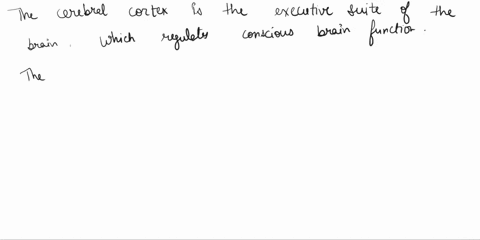 The cerebral cortex is the executive suite of the
brain. Which regulates conscious brain function.
The